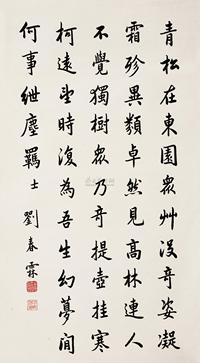 青松在東園眾艸沒奇姿凝
霜殄異類卓然見高林連人
不覺獨樹眾乃奇提壺挂寒
柯遠望時復為吾生幻夢間
何事紲塵羈 士 劉春霖